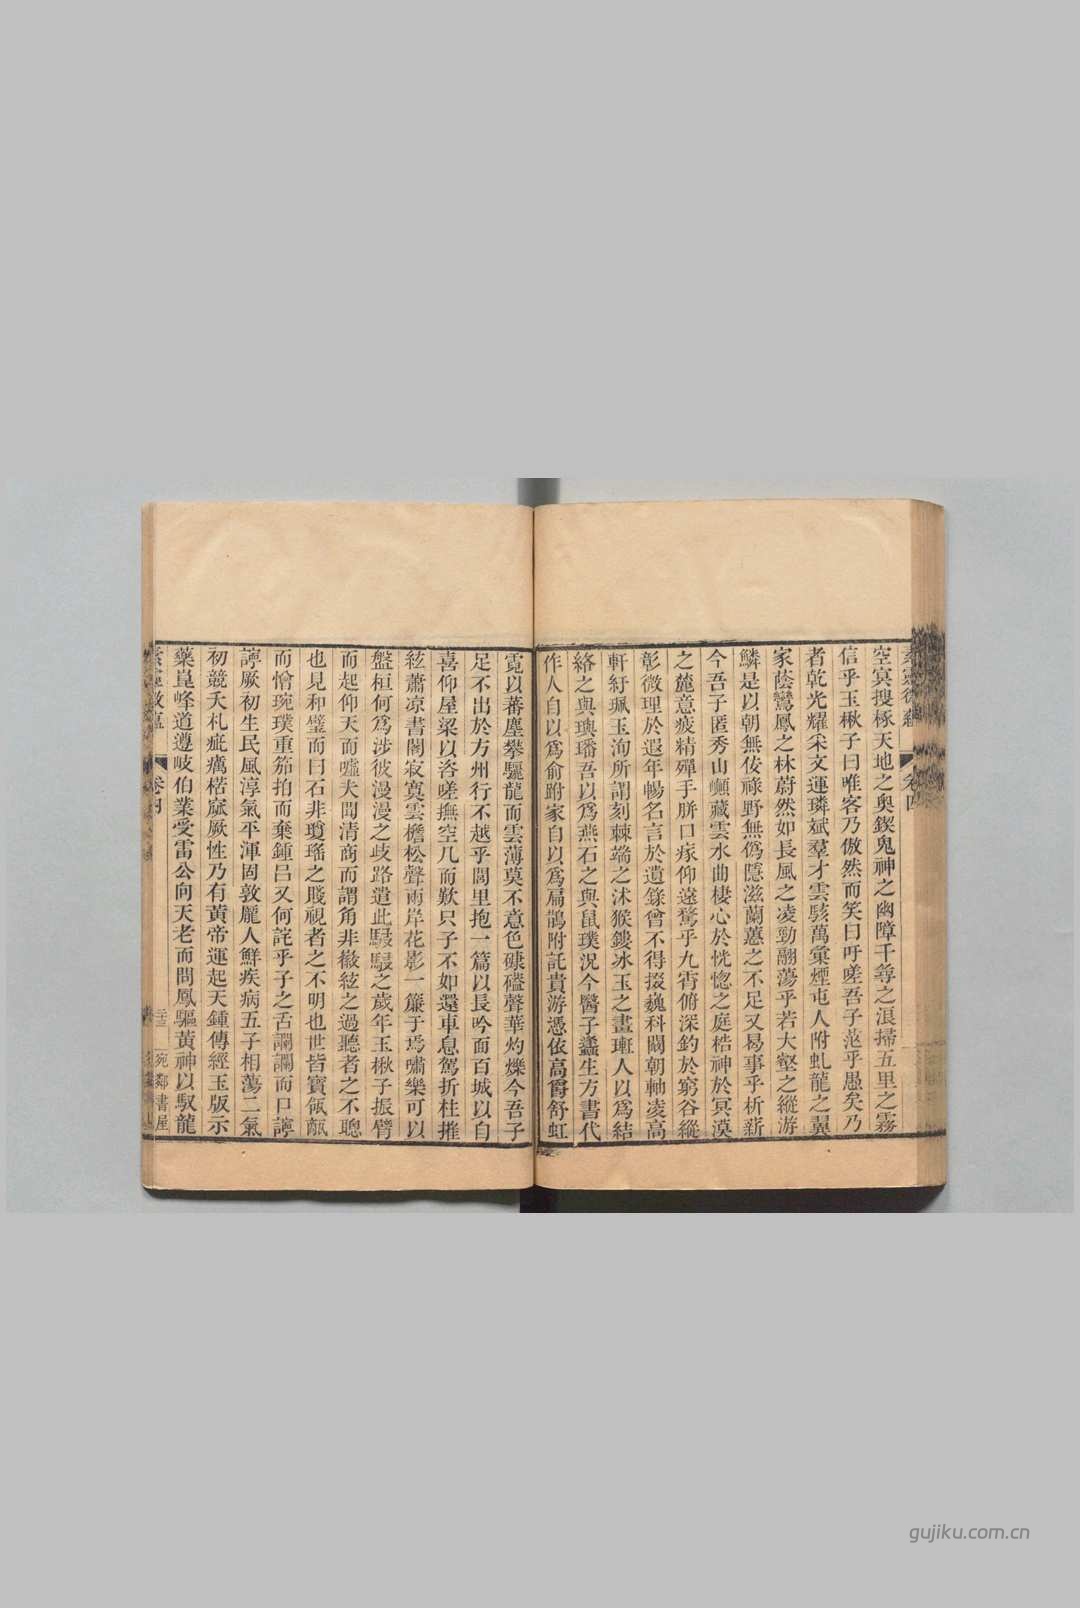 空冥搜椓天地之奧鍥鬼神之幽障千尋之浪掃五里之霧
信乎玉楸子曰唯客乃傲然而笑曰吁嗟吾子茫乎愚矣乃
者乾光耀采文運璘斌羣才雲駭萬彙煙屯人附虬龍之翼
家蔭鸞鳳之林蔚然如長風之凌勁翮蕩乎若大壑之縱游
鱗是以朝無伎祿野無僞隱滋蘭蕙之不足又曷事乎析薪
今吾子匿秀山巓藏雲水曲棲心於恍惚之庭梏神於冥漠
之麓意疲精殫手胼口瘃仰遠騖乎九霄俯深釣於窮谷縱
彰微理於遐年暢名言於遺籙曾不得掇巍科闢朝軸凌高
軒紆珮玉洵所謂刻棘端之沐猴鏤冰玉之畫璉人以爲結
絡之與璵璠吾以爲燕石之與鼠璞況今醫子蠭生方書代
作人自以爲俞跗家自以爲扁鵲附託貴游憑依高爵舒虹
霓以蕃塵攀驪龍而雲薄莫不意色硉磕聲華灼爍今吾子
足不出於方州行不越乎闊里抱一篇以長吟面百城以自
喜仰屋梁以咨嗟撫空几而歎只子不如還車息駕折柱摧
絃蕭凉書閣寂寞雲檐松聲兩岸花影一簾于焉嘯樂可以
盤桓何爲涉彼漫漫之歧路遣此駸駸之歲年玉楸子振臂
而起仰天而噓夫聞清商而謂角非徽絃之過聽者之不聰
也見和璧而曰石非瓊瑤之賤視者之不明也世皆寶瓴甋
而憎琬璞重笳拍而棄鍾呂又何詫乎子之舌讕讕而口諄
諄厥初生民風淳氣平渾固敦龐人鮮疾病五子相蕩二氣
初競夭札疵癘楛窳厥性乃有黃帝運起天鍾傳經玉版示
藥崑峰道遵岐伯業受雷公向天老而問鳳驅黃神以馭龍
卷四
宛鄰書屋
gujiku.com.cn